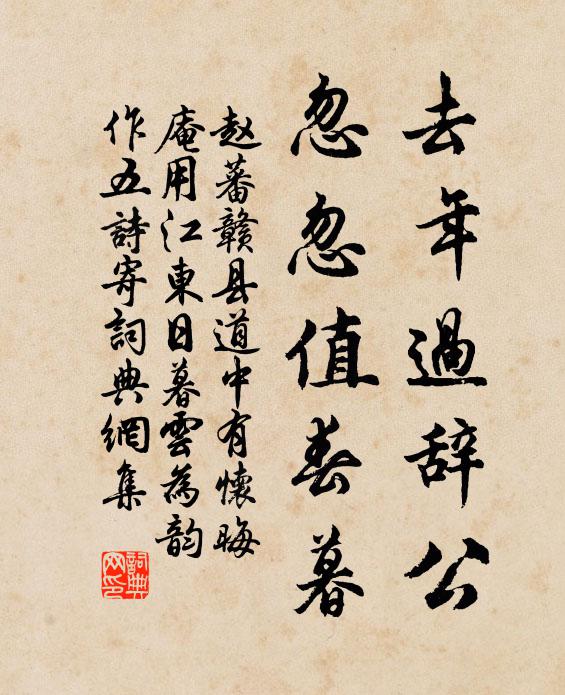 去年過辞公
忽忽值春暮
赵蕃赣县道中有懷晦
庵用江東日暮雲為韵
作五詩寄詞典網集
詞典
网印